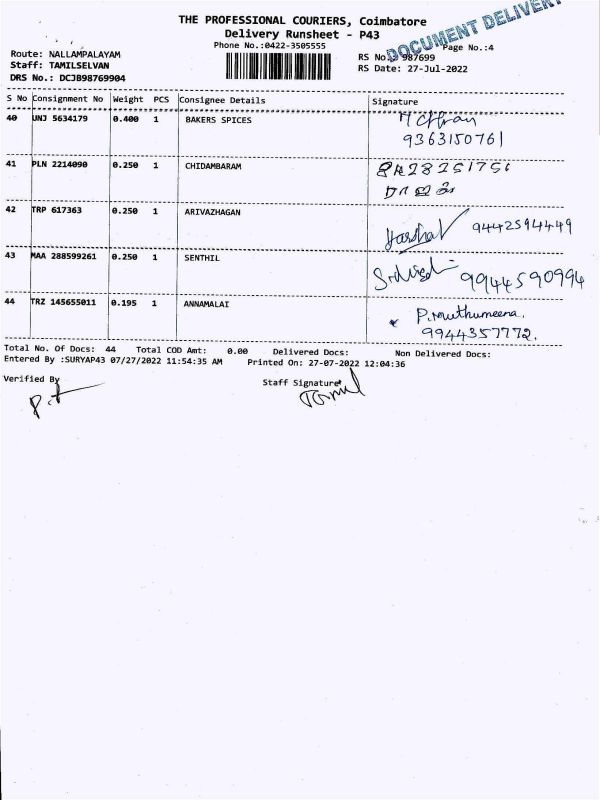 THE PROFESSIONAL COURIERS, Coimbatore
Delivery Runsheet - P43
DOCUMENT DELIVERY
Phone No.:0422-3505555
Page No.:4
Route: NALLAMPALAYAM
RS No.: 987699
Staff: TAMILSELVAN
RS Date: 27-Jul-2022
DRS No.: DCJB98769904
S No Consignment No Weight PCS Consignee Details Signature
40 UNJ 5634179 0.400 1 BAKERS SPICES
9363150761
41 PLN 2214090 0.250 1 CHIDAMBARAM
42 TRP 617363 0.250 1 ARIVAZHAGAN 9442594449
43 MAA 288599261 0.250 1 SENTHIL 9944590994
44 TRZ 145655011 0.195 1 ANNAMALAI P.muthumeena.
9944357772.
Total No. Of Docs: 44 Total COD Amt: 0.00 Delivered Docs: Non Delivered Docs:
Entered By :SURYAP43 07/27/2022 11:54:35 AM Printed On: 27-07-2022 12:04:36
Verified By Staff Signature